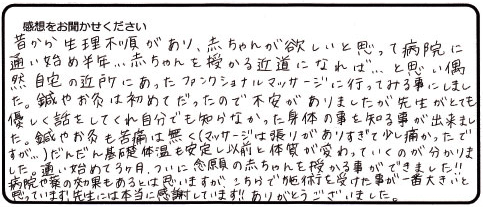 感想をお聞かせください
昔から生理不順があり、赤ちゃんが欲しいと思って病院に
通い始め半年…赤ちゃんを授かる近道になれば…と思い偶
然自宅の近所にあったファンクショナルマッサージに行ってみる事にしまし
た。鍼やお灸は初めてだったので不安がありましたが先生がとても
優しく話をしてくれ自分でも知らなかった身体の事を知る事が出来まし
た。鍼やお灸も苦痛は無く(マッサージは張りがありすぎて少し痛かったで
すが…)だんだん基礎体温も安定し以前と体質が変わっていくのが分かりま
した。通い始めて3ヶ月、ついに念願の赤ちゃんを授かる事ができました!!
病院や薬の効果もあるとは思いますが、こちらで施術を受けた事が一番大きいと
思っています!先生には本当に感謝しています!!ありがとうございました。